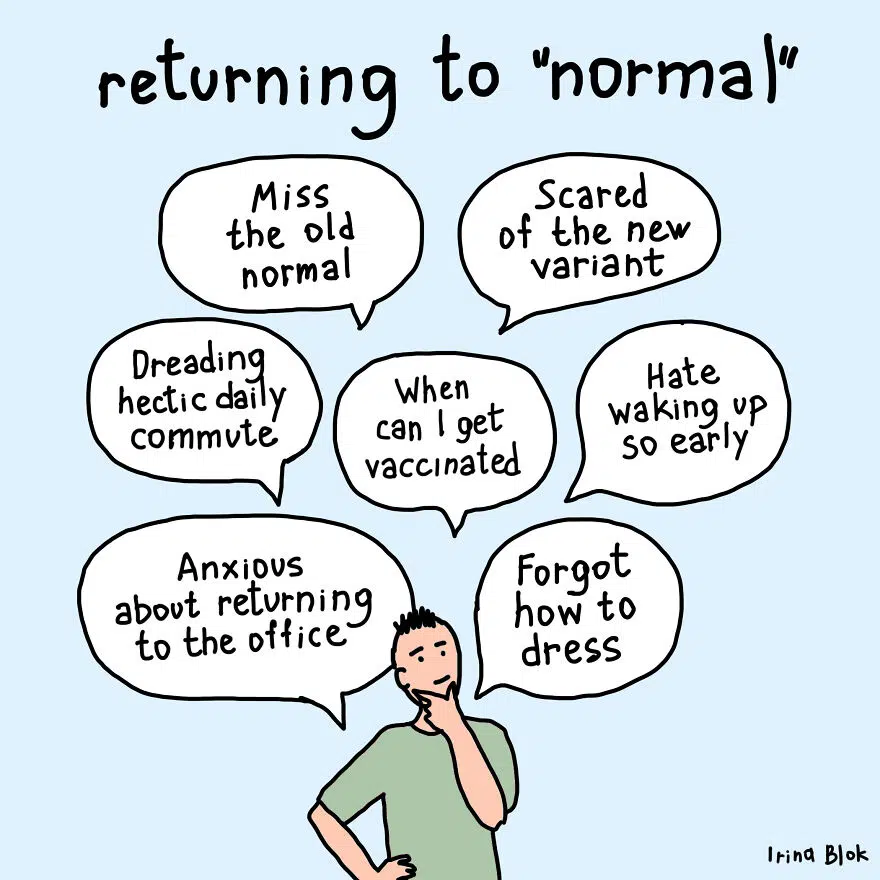 returning to "normal"
Miss
the old
normal
Scared
of the new
variant
Dreading
hectic daily
commute
When
can I get
vaccinated
Hate
waking up
so early
Anxious
about returning
to the office
Forgot
how to
dress
Irina Blok